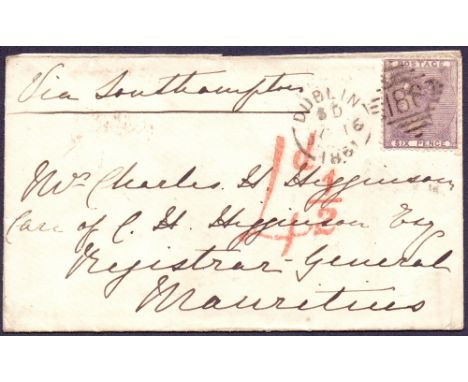 Via Southampton
POSTAGE
SIX PENCE
186
DUBLIN
1861
1d
1/2
Mr. Charles H. Higginson
Care of C. H. Higginson Esq
Registrar-General
Mauritius